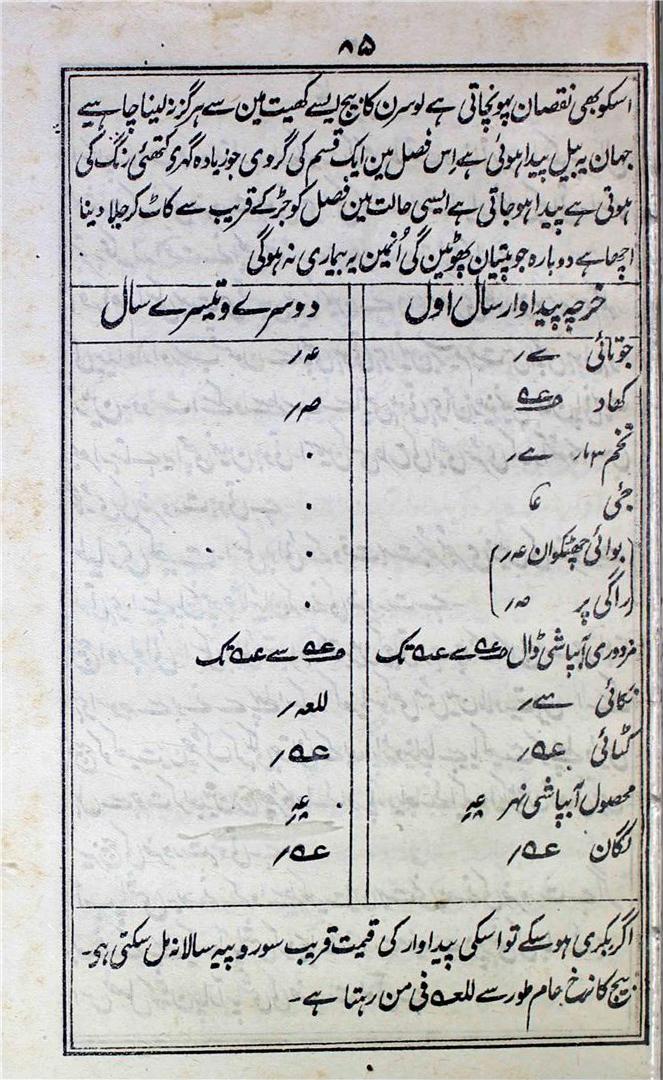 ۸۵
اسکو بھی نقصان پہونچاتی ہے لوسرن کا بیج ایسے کھیت مین سے ہرگز نہ لینا چاہیے
جہان یہ بیل پیدا ہوئی ہے اِس فصل مین ایک قسم کی گروی جو زیادہ گہری کتھئی رنگ کی
ہوتی ہے پیدا ہو جاتی ہے ایسی حالت مین فصل کو جڑ کے قریب سے کاٹ کر جلا دینا
اچھا ہے دوبارہ جو پتیان پھوٹین گی اُنمین یہ بیماری نہ ہوگی
خرچہ پیداوار سال اول دوسرے و تیسرے سال
جوتائی
کھاد
تخم
جئی
بوائی چھٹکوان
راگی پر
مزدوری آبپاشی ڈال سے تک سے تک
نکائی
کٹائی
محصول آبپاشی نہر
لگان
اگر بکری ہو سکے تو اسکی پیداوار کی قیمت قریب سو روپیہ سالانہ مل سکتی ہی۔
بیج کا نرخ عام طور سے فی من رہتا ہے۔